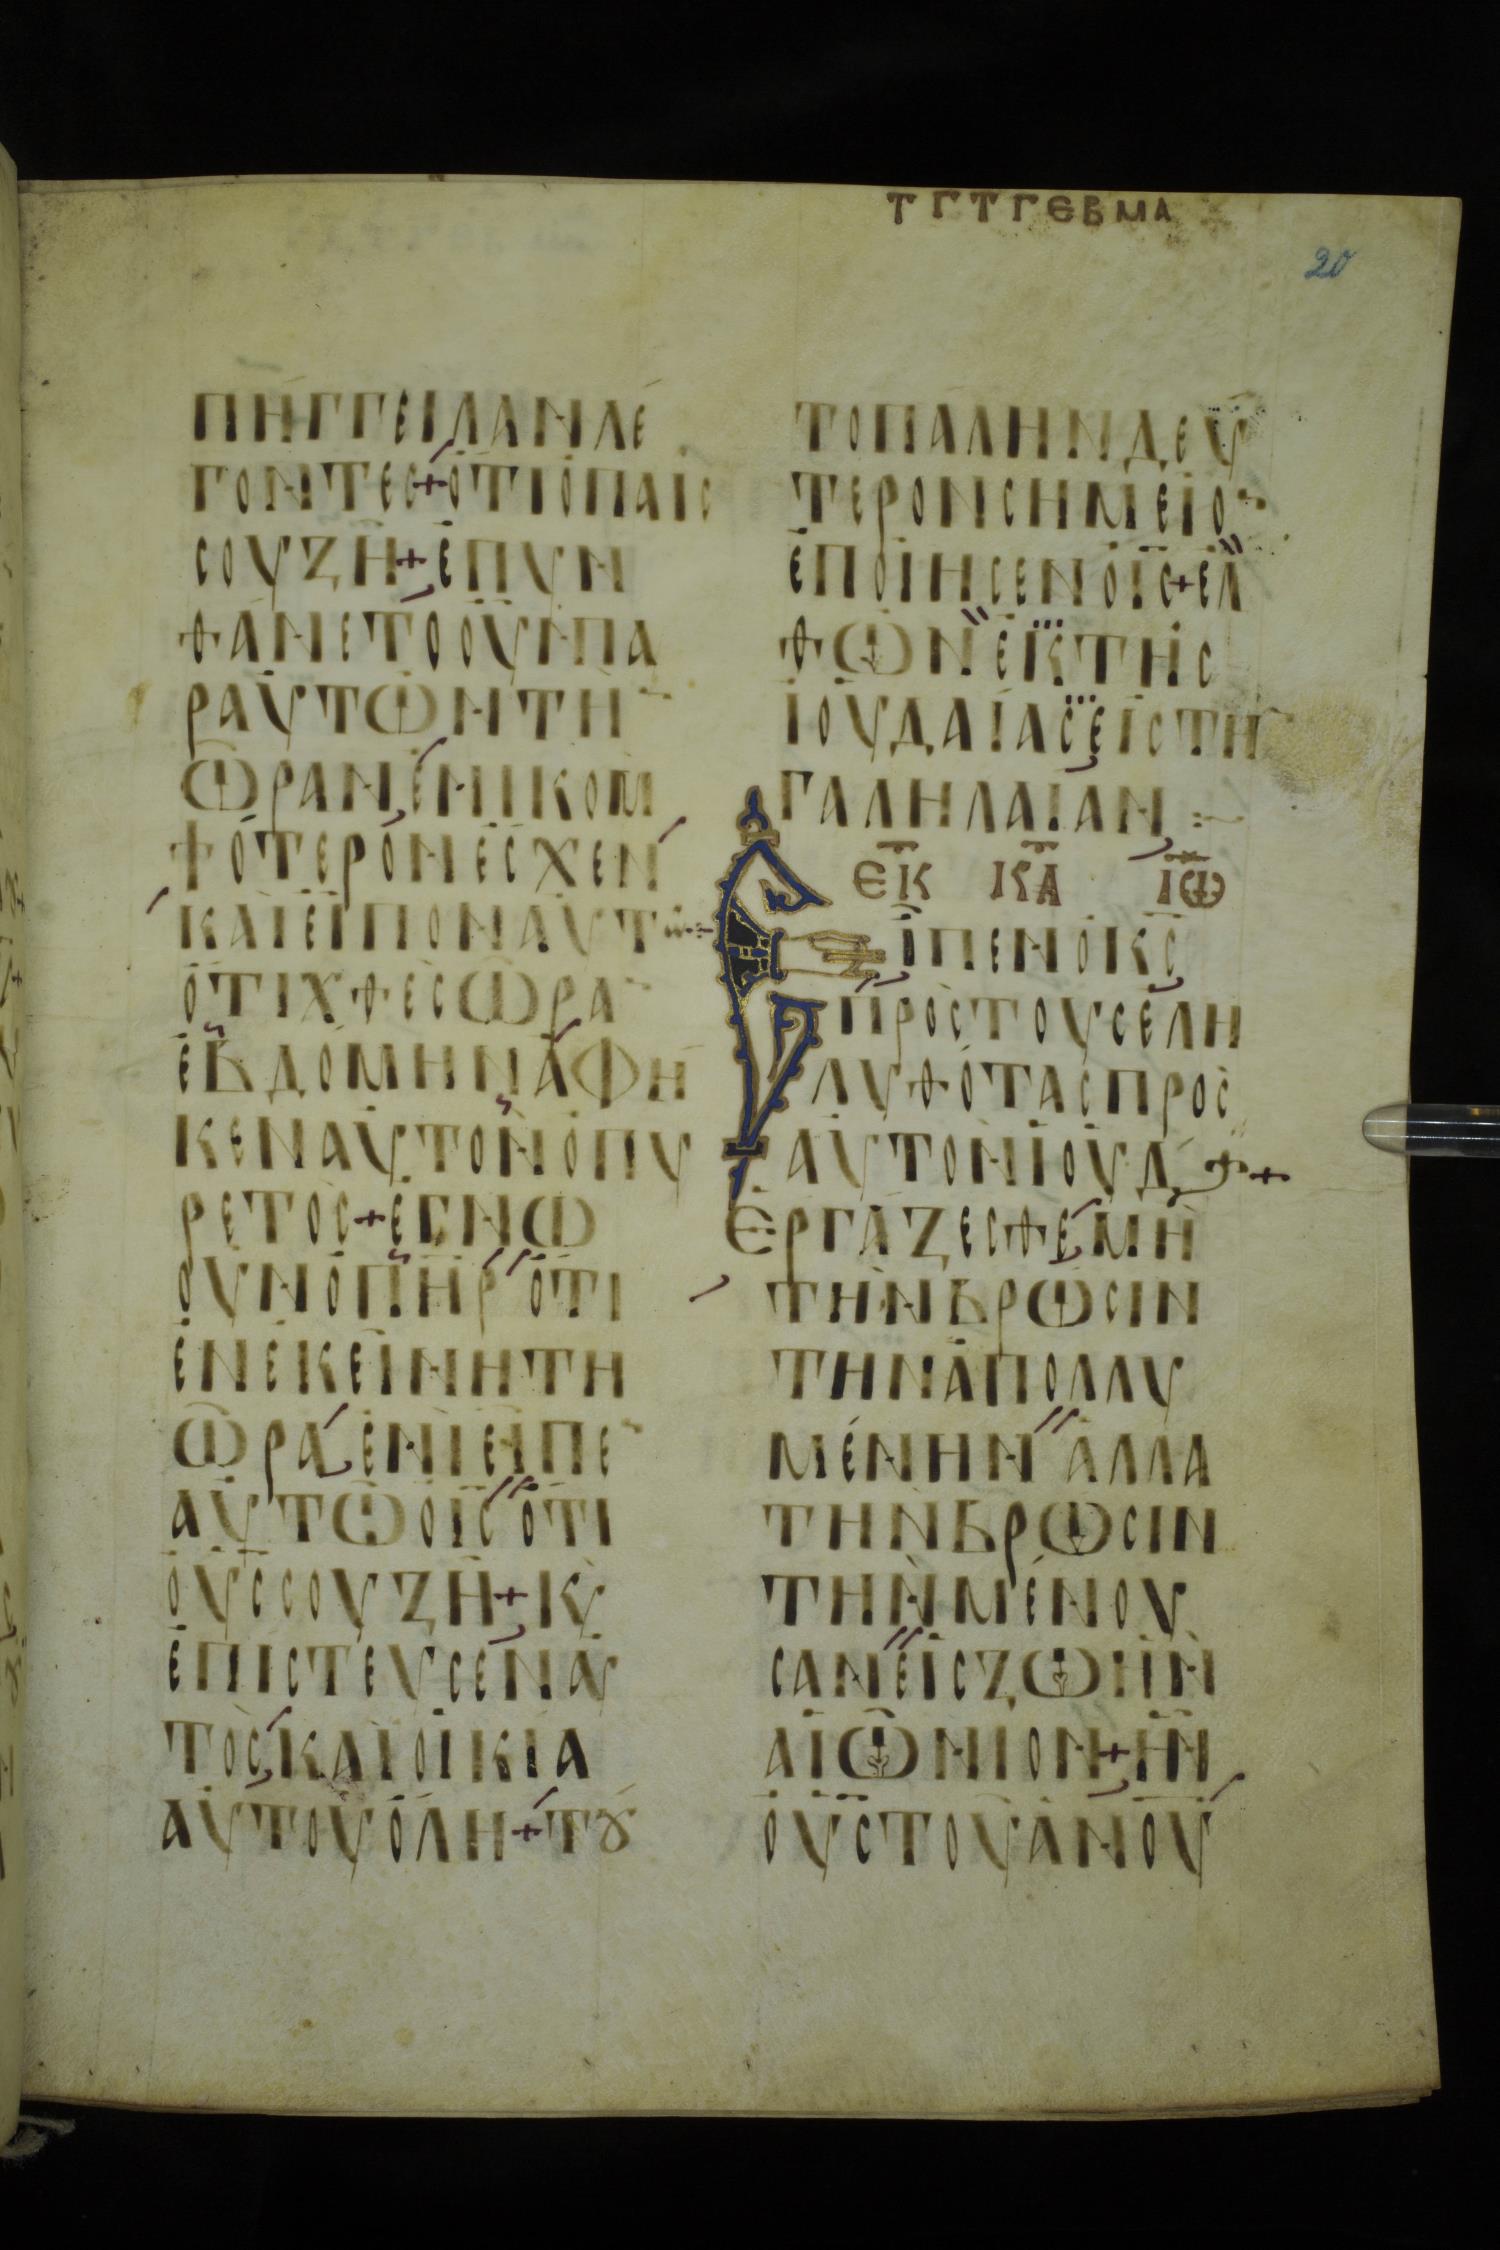 ΤΓ ΤΓ ΕΒΜΑ
20
ΠΗΓΓΕΙΛΑΝΛΕ
ΓΟΝΤΕϹ+ΟΤΙΟΠΑΙϹ
ϹΟΥΖΗ+ΕΠΥΝ
ΘΑΝΕΤΟΟΥΝΠΑ
ΡΑΥΤΩΝΤΗ̅
ΩΡΑΝΕΝΙΚΟΜ
ΨΟΤΕΡΟΝΕϹΧΕΝ
ΚΑΙΕΙΠΟΝΑΥΤ
ΟΤΙΧΘΕϹΩΡΑ̅
ΕΒΔΟΜΗΝΑΦΗ
ΚΕΝΑΥΤΟΝΟΠΥ
ΡΕΤΟϹ+ΕΓΝΩ
ΟΥΝΟΠΗΡ ΟΤΙ
ΕΝΕΚΕΙΝΗΤΗ
ΩΡΑΕΝΙΕΙΠΕ̅
ΑΥΤΩΟΙ̅Ϲ̅ ΟΤΙ
ΟΥ̅Ϲ̅ϹΟΥΖΗ+ΚΥ
ΕΠΙϹΤΕΥϹΕΝΑΥ
ΤΟϹΚΑΙΟΙΚΙΑ
ΑΥΤΟΥΟΛΗ+ΤȢ
ΤΟΠΑΛΗΝΔΕΥ
ΤΕΡΟΝϹΗΜΕΙΟ̅
ΕΠΟΙΗϹΕΝΟΙ̅Ϲ̅+ΕΛ
ΘΩΝΕΚΤΗϹ
ΙΟΥΔΑΙΑϹΕΙϹΤΗ̅
ΓΑΛΗΛΑΙΑΝ
ΕΚ ΚΑ ΙΩ
ΕΙΠΕΝΟΚ̅Ϲ̅
ΠΡΟϹΤΟΥϹΕΛΗ
ΛΥΘΟΤΑϹΠΡΟϹ
ΑΥΤΟΝΙΟΥΔ +
ΕΡΓΑΖΕϹΘΕΜΗ
ΤΗΝΒΡΩϹΙΝ
ΤΗΝΑΠΟΛΛΥ
ΜΕΝΗΝ ΑΛΛΑ
ΤΗΝΒΡΩϹΙΝ
ΤΗΝΜΕΝΟΥ
ϹΑΝΕΙϹΖΩΗΝ
ΑΙΩΝΙΟΝ+ΗΝ
ΟΥ̅Ϲ̅ΤΟΥΑ̅Ν̅Ο̅Υ̅